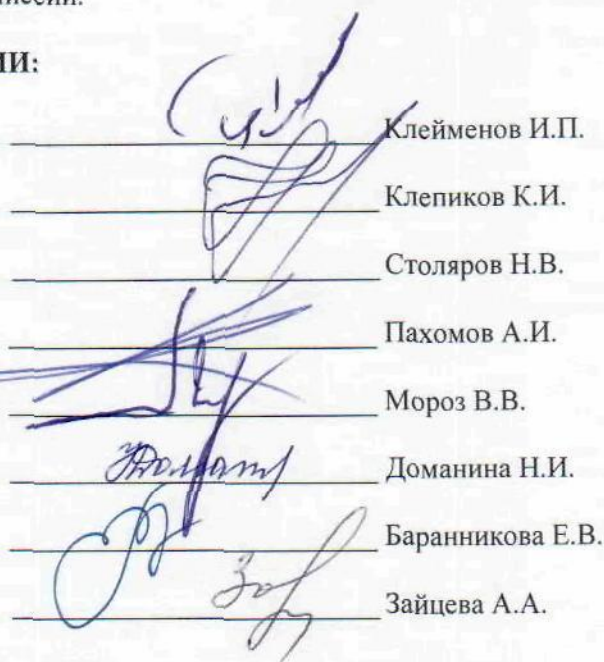 ИИ:
Клейменов И.П.
Клепиков К.И.
Столяров Н.В.
Пахомов А.И.
Мороз В.В.
Доманина Н.И.
Баранникова Е.В.
Зайцева А.А.